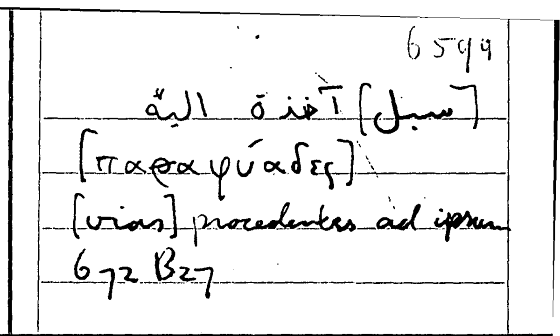 6599
[سبل] آخذة اليه
[παραφύαδες]
[vias] procedentes ad ipsum
672 B27